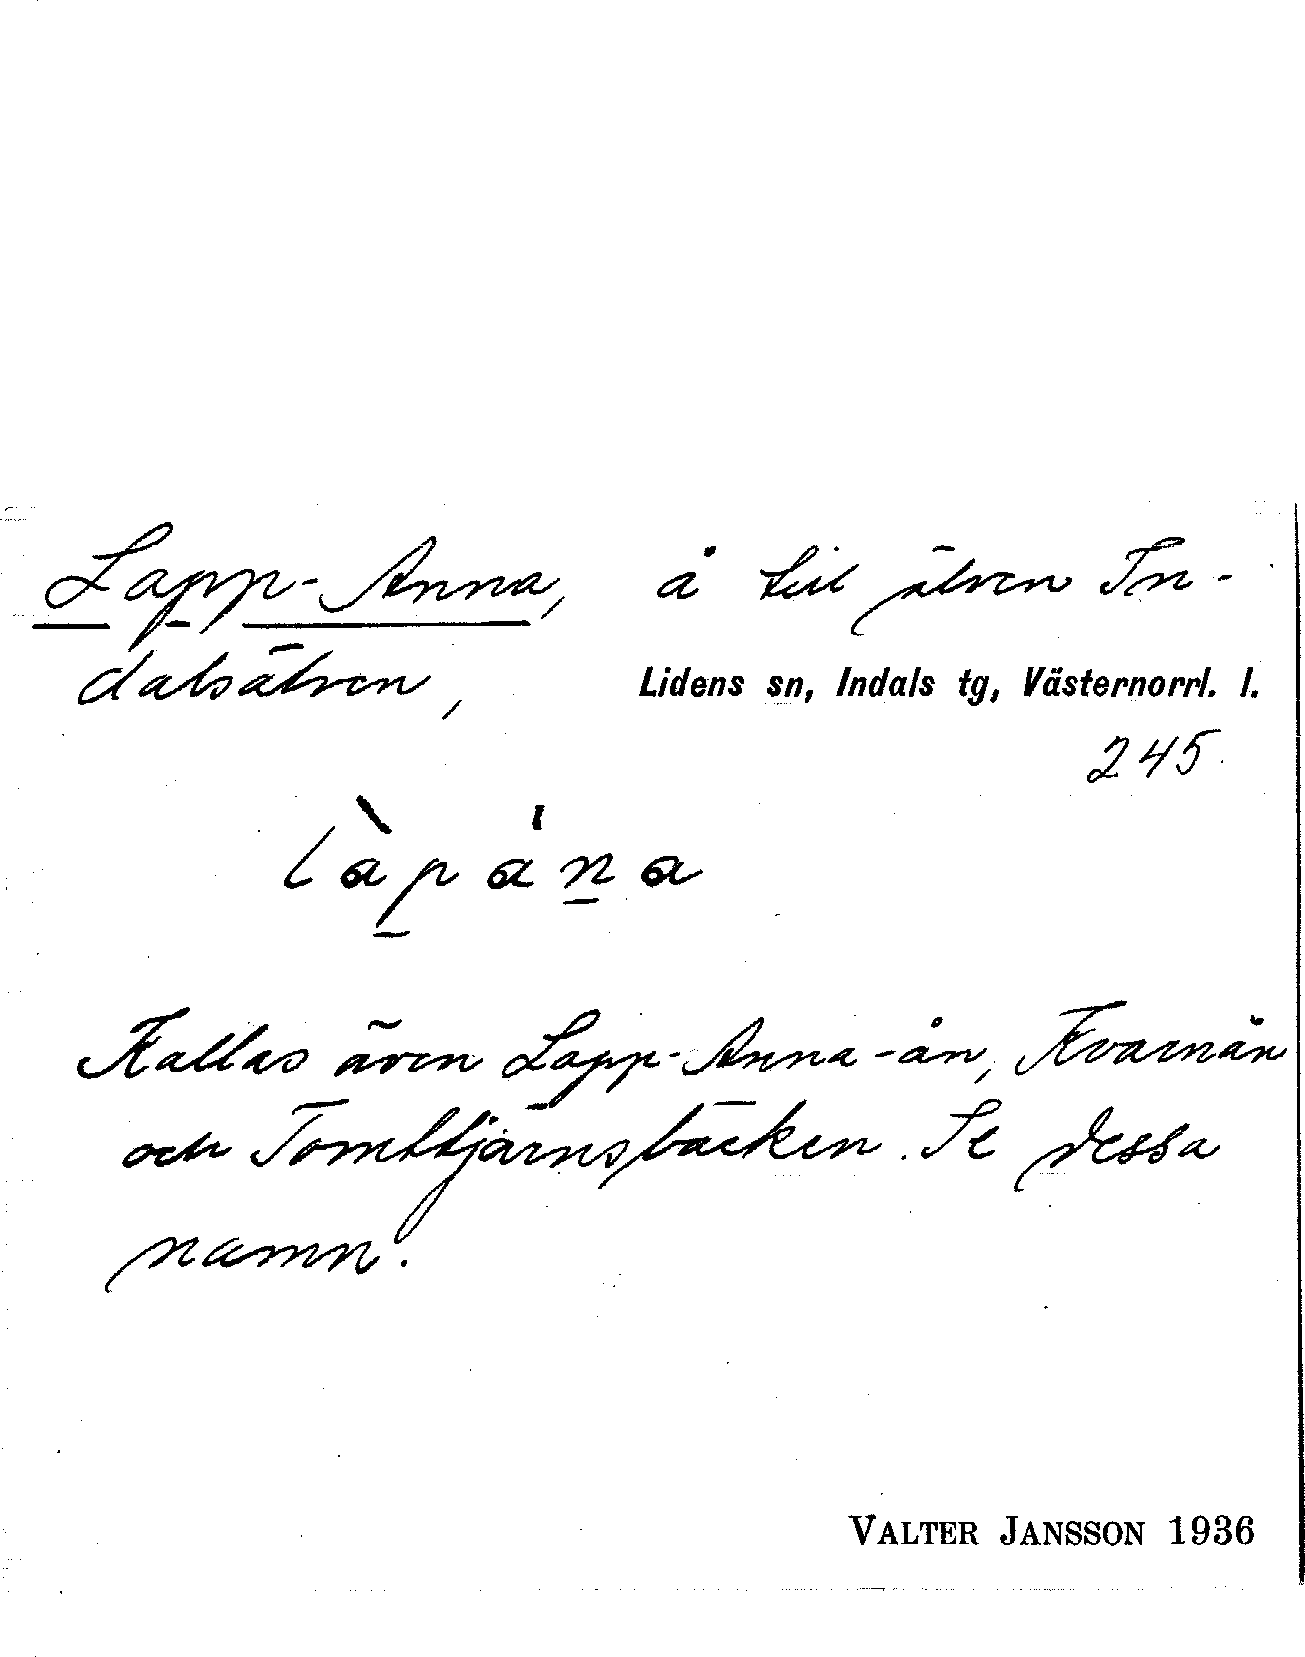 Lapp-Anna, å till älven In-
dalsälven,
Lidens sn, Indals tg, Västernorrl. l.
245.
làp̱áṉa
Kallas även Lapp-Anna-ån, Kvarnån
och Tomttjärnsbäcken. Se dessa
namn.
VALTER JANSSON 1936